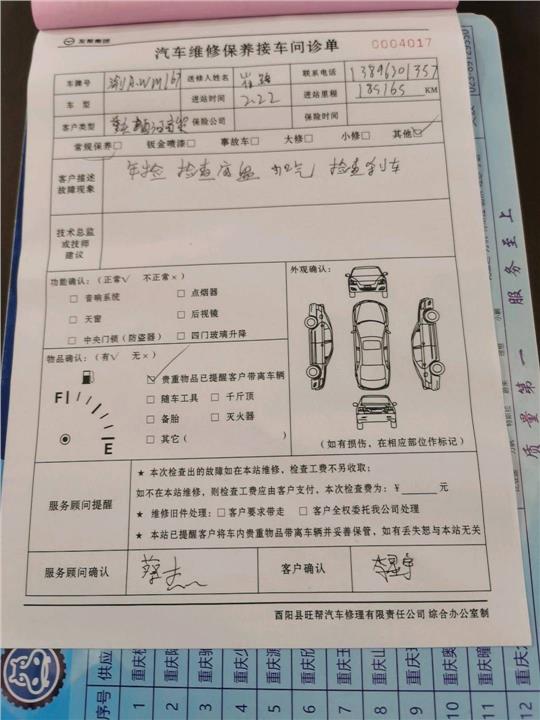 友帮集团
汽车维修保养接车问诊单 0004017
车牌号 送修人姓名 崔 联系电话 13896301357
车型 进站时间 2.22 进站里程 185165 KM
客户类型 保险公司 保险时间
常规保养□ 钣金喷漆□ 事故车□ 大修□ 小修□ 其他☑
客户描述故障现象 年检 检查底盘 加气 检查刹车
技术总监或技师建议
功能确认:(正常√ 不正常×) 外观确认:
□ 音响系统 □ 点烟器
□ 天窗 □ 后视镜
□ 中央门锁(防盗器) □ 四门玻璃升降
物品确认:(有√ 无×)
☑ 贵重物品已提醒客户带离车辆
F □ 随车工具 □ 千斤顶
□ 备胎 □ 灭火器
E □ 其它( )
(如有损伤,在相应部位作标记)
服务顾问提醒
★ 本次检查出的故障如在本站维修,检查工费不另收取;
如不在本站维修,则检查工费应由客户支付,本次检查费为:¥ 元
★ 维修旧件处理:□ 客户要求带走 □ 客户全权委托我公司处理
★ 本站已提醒客户将车内贵重物品带离车辆并妥善保管,如有丢失恕与本站无关
服务顾问确认 客户确认
酉阳县旺帮汽车修理有限责任公司 综合办公室制
质量第一 服务至上
023-89129550
序号 1 2 3 4 5 6 7 8 9 10 11 12
供应
重庆